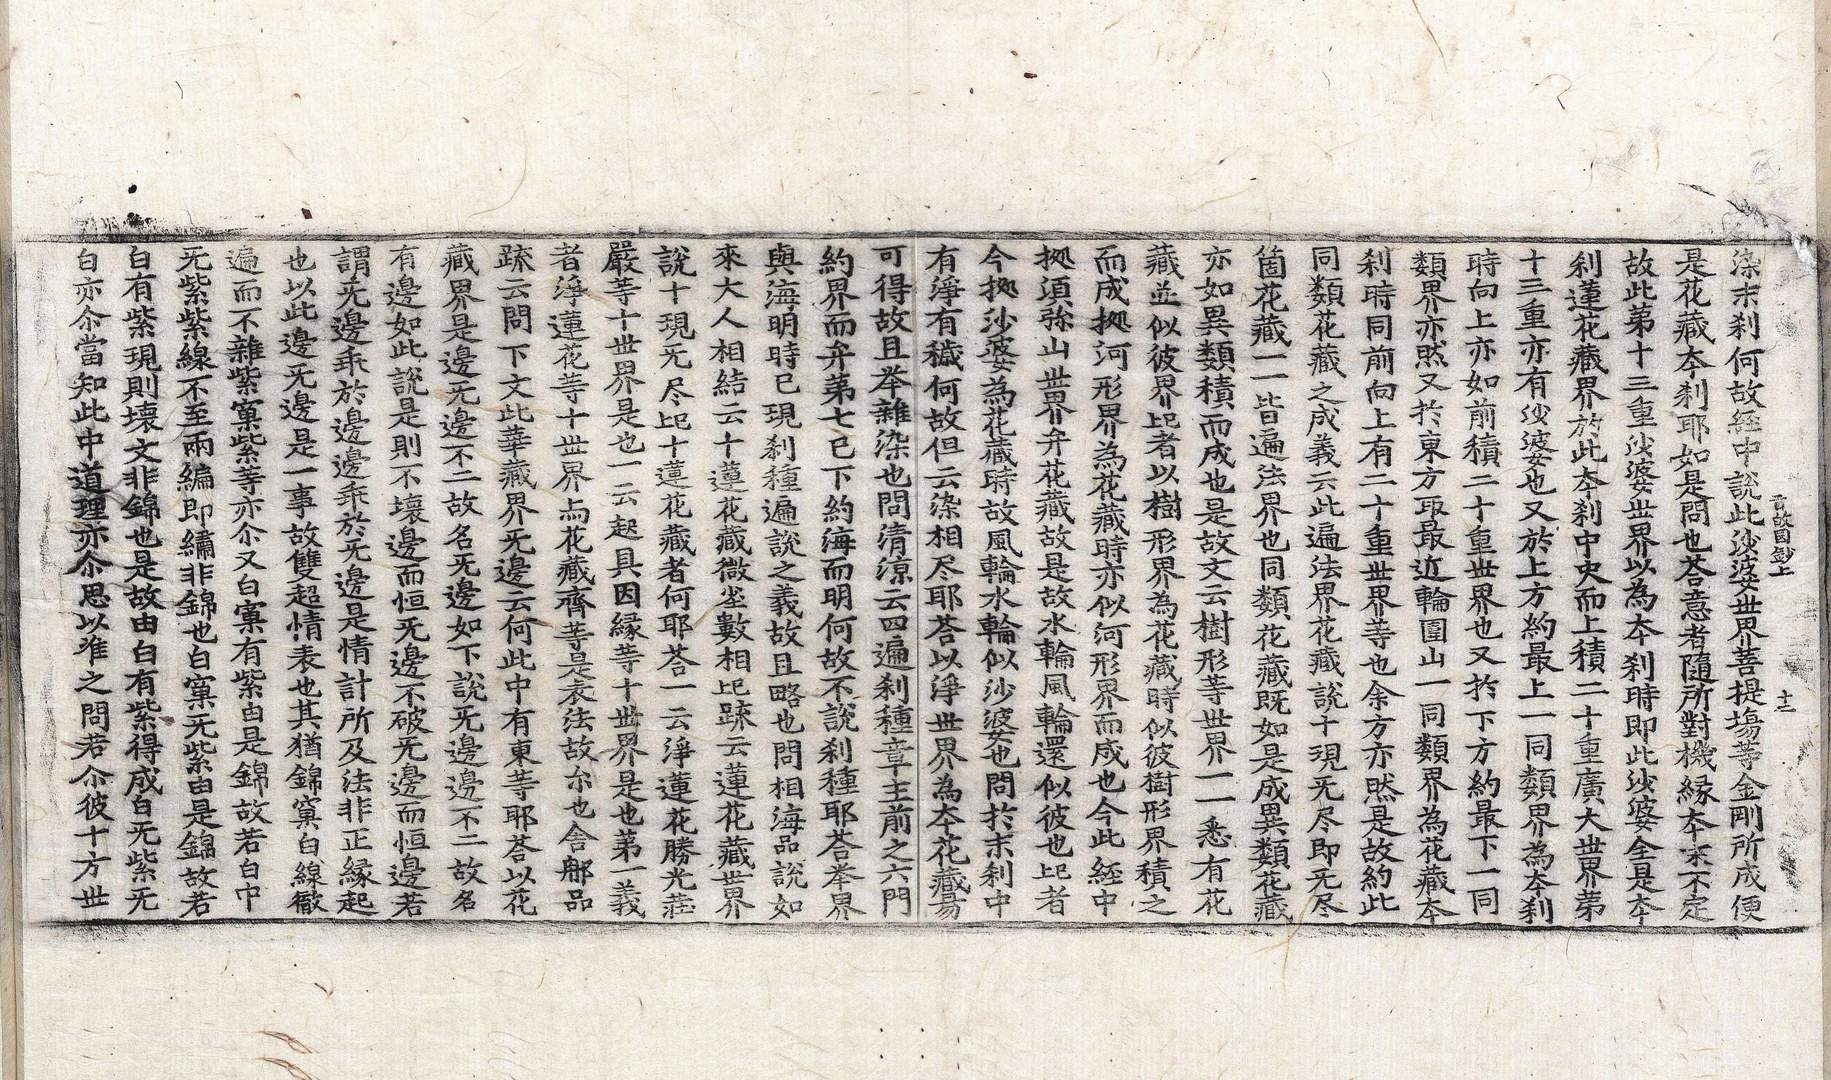 染末刹何故經中說此沙婆世界菩提塲等金剛所成便
是花藏夲刹耶如是問也荅意者隨所對機緣夲末不定
故此第十三重沙婆世界以為夲刹時即此沙婆全是夲
刹蓮花藏界於此夲刹中央而上積二十重廣大世界第
十三重亦有沙婆也又於上方約最上一同類界為夲刹
時向上亦如前積二十重世界也又扵下方約最下一同
類界亦然又扵東方取最近輪圍山一同類界為花藏夲
刹時同前向上有二十重世界等也余方亦然是故約此
同類花藏之成義云此遍法界花藏說十現旡尽即旡尽
箇花藏一一皆遍法界也同類花藏既如是成異類花藏
亦如異類積而成也是故文云樹形等世界一一悉有花
藏並似彼界𣅜者以樹形界為花藏時似彼樹形界積之
而成拠河形界為花藏時亦似河形界而成也今此經中
拠須弥山世界弁花藏故是故水輪風輪還似彼也𣅜者
今拠沙婆為花藏時故風輪水輪似沙婆也問扵末刹中
有淨有穢何故但云染相尽耶荅以淨世界為夲花藏易
可得故且举雜染也問清涼云四遍刹種章主前之六門
約界而弁第七已下約海而明何故不說刹種耶荅举界
與海明時已現刹種遍說之義故且略也問相海品說如
來大人相結云十蓮花藏微尘數相𣅜疎云蓮花藏世界
說十現旡尽𣅜十蓮花藏者何耶荅一云淨蓮花勝光莊
嚴等十世界是也一云起具因緣等十世界是也第一義
者淨蓮花等十世界与花藏齊等是表法故尒也舎那品
疏云問下文此華藏界旡邊云何此中有東等耶荅以花
藏界是邊旡邊不二故名旡邊如下說旡邊邊不二故名
有邊如此說是則不壞邊而恒旡邊不破旡邊而恒邊若
謂旡邊乖於邊邊乖於旡邊是情計所及法非正緣起
也以此邊旡邊是一事故雙超情表也其猶錦窠白線徹
遍而不雜紫窠紫等亦尒又白窠有紫由是錦故若白中
旡紫紫線不至兩編即繡非錦也白窠旡紫由是錦故若
白有紫現則壊文非錦也是故由白有紫得成白旡紫旡
白亦尒當知此中道理亦尒思以准之問若尒彼十方世
旨故因鈔上
十二